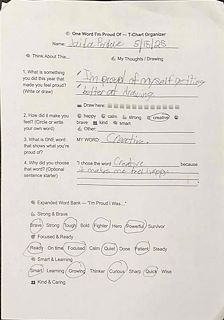 One Word I'm Proud Of — T-Chart Organizer
Name: 5/15/25
Think About This... My Thoughts / Drawing
1. What is something you did this year that made you feel proud? (Write or draw)
I'm proud of myself getting
better at drawing
Draw here:
2. How did it make you feel? (Circle or write your own word)
happy calm strong creative
brave kind smart
Other:
3. What is ONE word that shows what you're proud of?
MY WORD: Creative.
4. Why did you choose that word? (Optional sentence starter)
"I chose the word Creative because
it makes me feel happy.
Expanded Word Bank — "I'm Proud I Was..."
Strong & Brave
Brave Strong Tough Bold Fighter Hero Powerful Survivor
Focused & Ready
Ready On time Focused Calm Quiet Done Patient Steady
Smart & Learning
Smart Learning Growing Thinker Curious Sharp Quick Wise
Kind & Caring